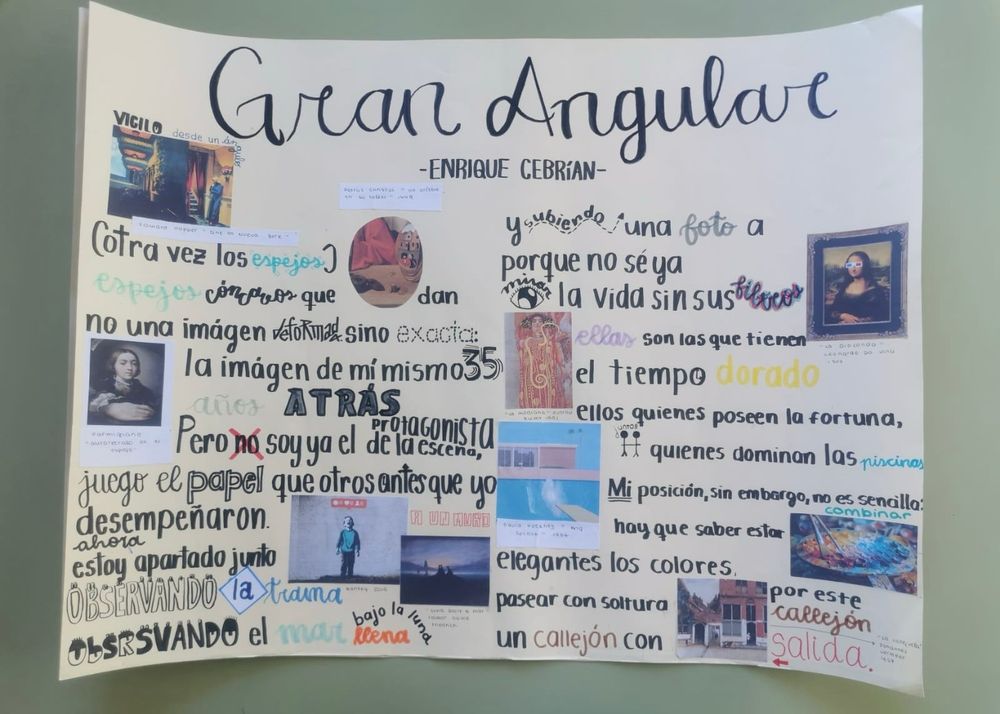 Gran Angular
-ENRIQUE CEBRÍAN-
VIGILO desde un ángulo
(otra vez los espejos)
espejos cóncavos que dan
no una imágen deformada sino exacta:
la imágen de mí mismo 35
años ATRÁS
Pero no soy ya el protagonista
de la escena,
juego el papel que otros antes que yo
desempeñaron.
ahora
estoy apartado junto
A UN MURO
OBSERVANDO la trama
OBSRSVANDO el mar bajo la luna
llena
y subiendo una foto a
porque no sé ya
mirar la vida sin sus filtros
ellas son las que tienen
el tiempo dorado
ellos quienes poseen la fortuna,
juntos
quienes dominan las piscinas
Mi posición, sin embargo, no es sencilla:
hay que saber estar combinar
elegantes los colores,
pasear con soltura por este
callejón
un callejón con salida.
"La Gioconda"
Leonardo da Vinci
Parmigiano
"autorretrato en su
espejo"